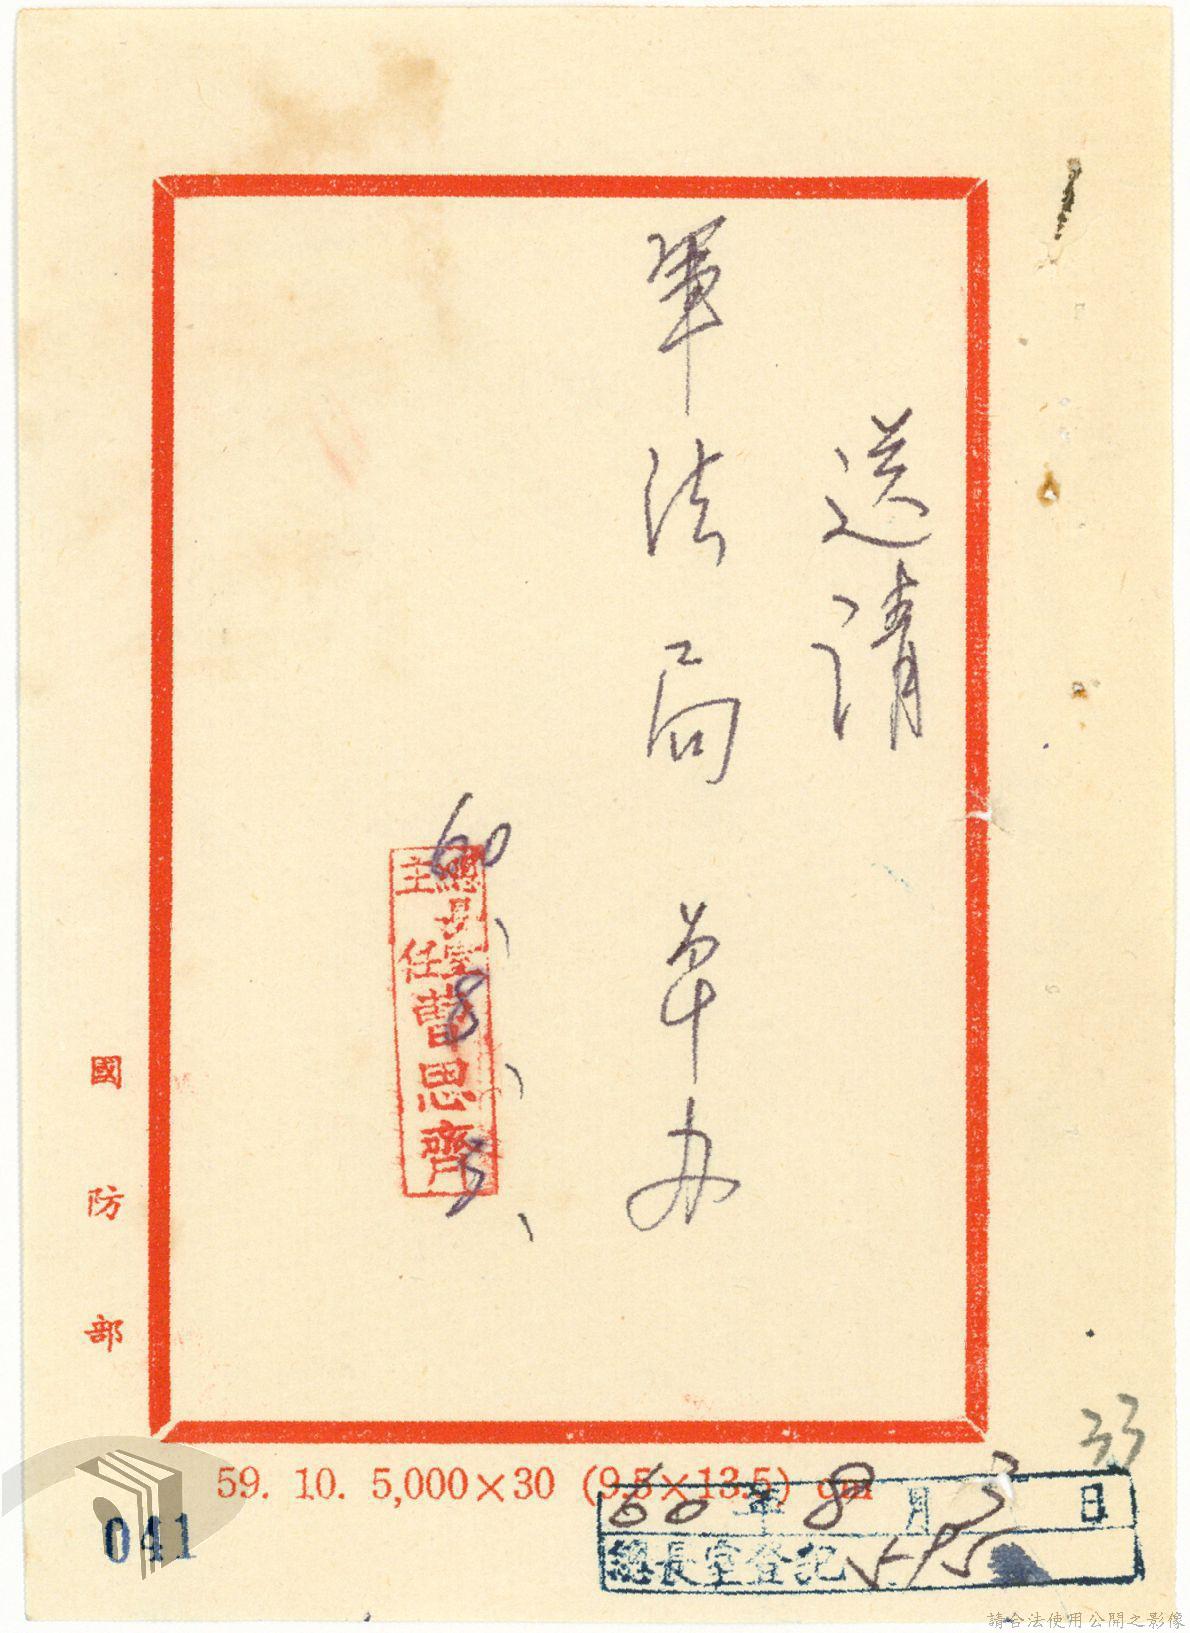 送請
軍法局卓办
60、8、3、
總長室
主任 曹思齊
國防部
59. 10. 5,000×30 (9.5×13.5) cm
33
60年8月3日
總長室登記
041
請合法使用公開之影像